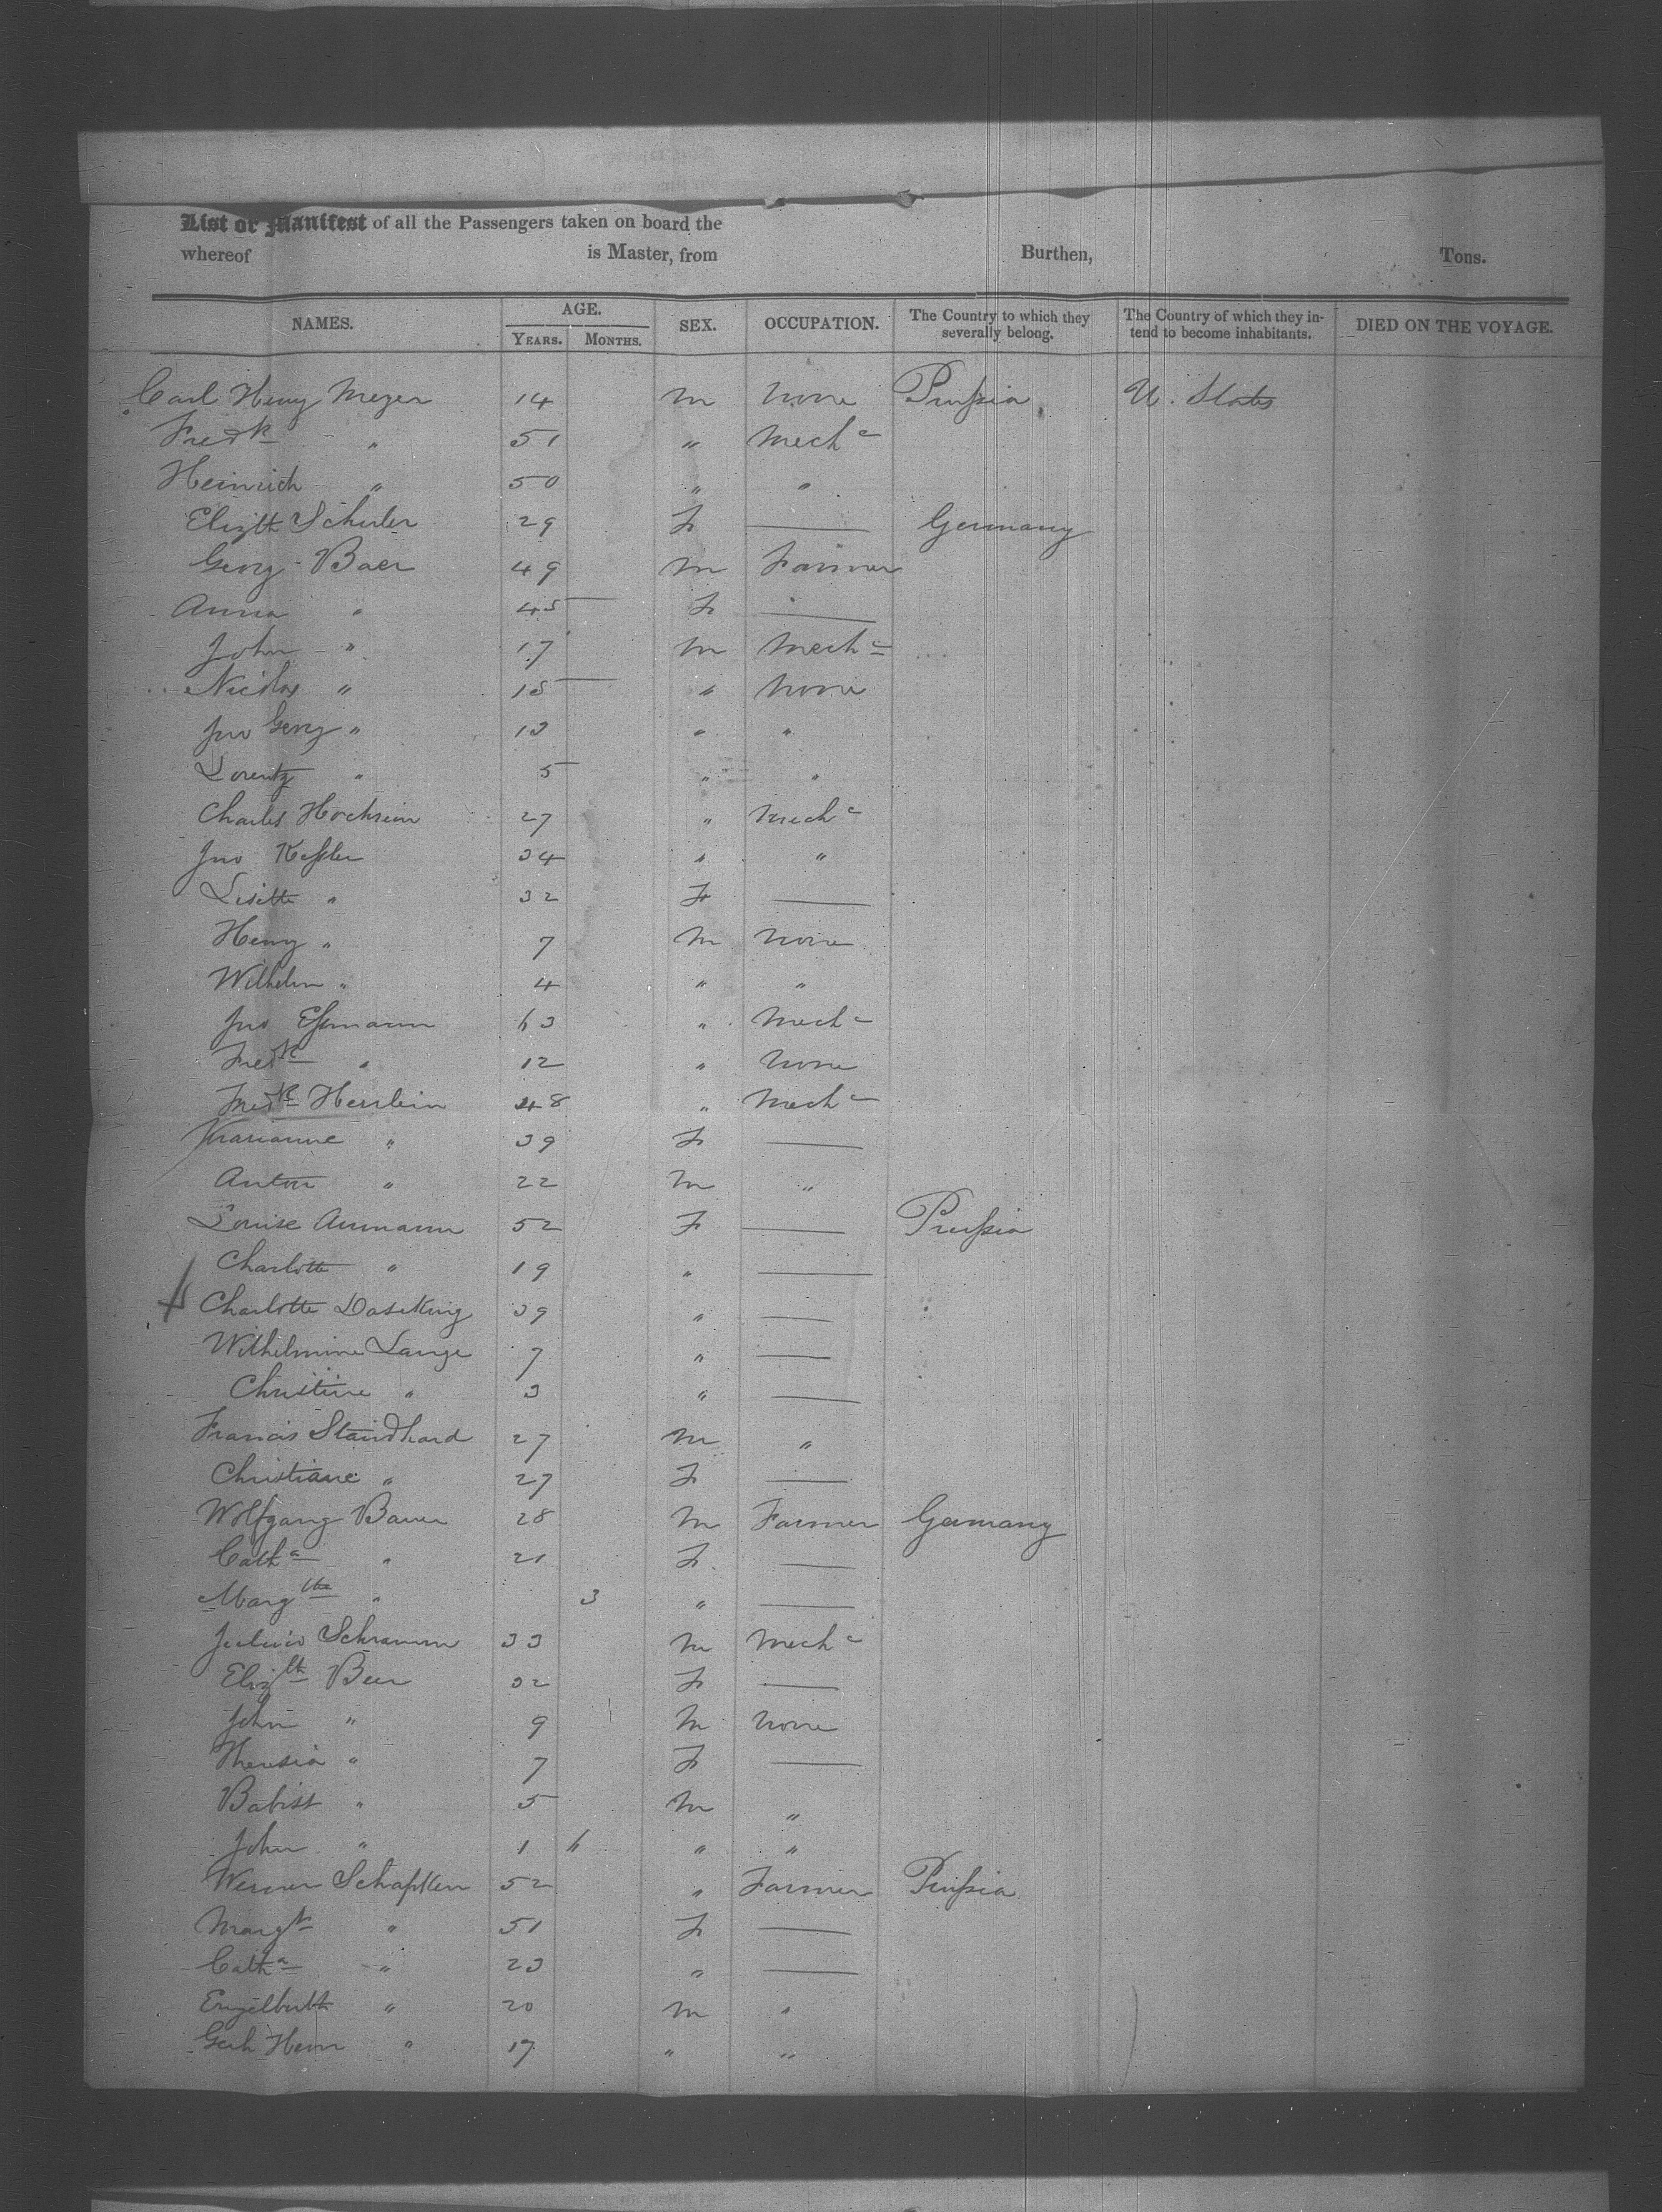 List or Manifest of all the Passengers taken on board the
whereof is Master, from Burthen, Tons.
NAMES. AGE. YEARS. MONTHS. SEX. OCCUPATION. The Country to which they severally belong. The Country of which they intend to become inhabitants. DIED ON THE VOYAGE.
Carl Henry Meyer 14 m none Prussia U. States
Fredk " 51 " Mechc
Heinrich " 50 " "
Elizth Schuler 29 F — Germany
Georg Baer 49 m Farmer
Anna " 45 F —
John " 17 m Mechc
Nicolas " 15 " none
Jno Georg " 13 " "
Lorentz " 5 " "
Charles Hochrein 27 " Mechc
Jno Kessler 34 " "
Lisette " 32 F —
Henry " 7 m none
Wilhelm " 4 " "
Jno Essmann 63 " Mechc
Fredk " 12 " none
Fredk Herrlein 48 " Mechc
Marianne " 39 F —
Anton " 22 m "
Louise Aumann 52 F — Prussia
Charlotte " 19 " —
Charlotte Daseking 39 " —
Wilhelmine Lange 7 " —
Christine " 3 " —
Francis Standhard 27 m "
Christiane " 27 F —
Wolfgang Bauer 28 m Farmer Germany
Catha " 21 F —
Margthe " 3 " —
Julius Schramm 33 m Mechc
Elizth Beer 32 F —
John " 9 m none
Theresia " 7 F —
Babist " 5 m "
John " 1 6 " "
Werner Schapken 52 " Farmer Prussia
Margt " 51 F —
Catha " 23 " —
Engelberth " 20 m "
Gerh Henr " 17 " "